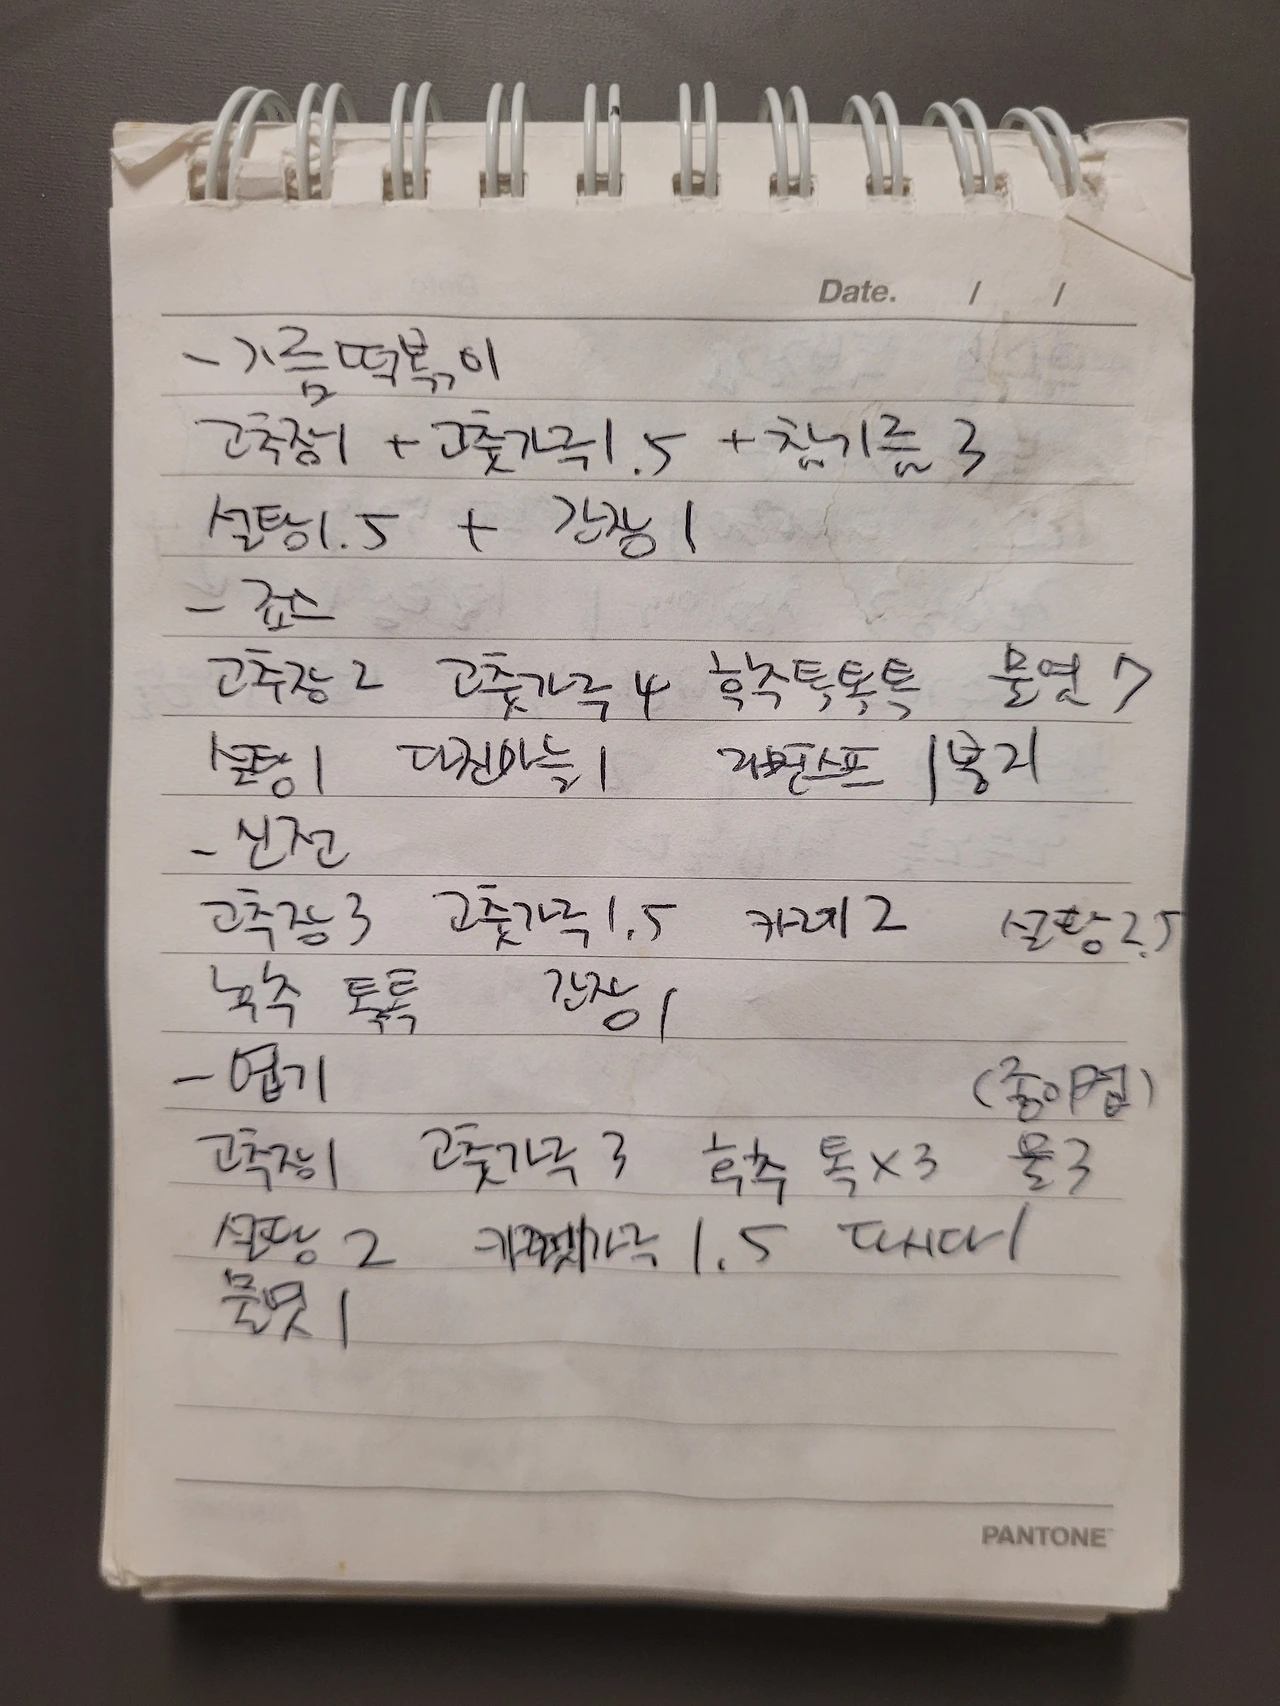 Date. / /
- 기름떡볶이
고추장1 + 고춧가루1.5 + 참기름 3
설탕1.5 + 간장 1
- 죠스
고추장 2 고춧가루 4 후추톡톡톡 물엿 7
설탕1 다진마늘1 라면스프 1봉지
- 신전
고추장3 고춧가루1.5 카레 2 설탕2.5
후추 톡톡 간장1
- 엽기 (종이컵)
고추장1 고춧가루 3 후추 톡x3 물3
설탕 2 가루 1.5 다시다1
물엿 1
PANTONE